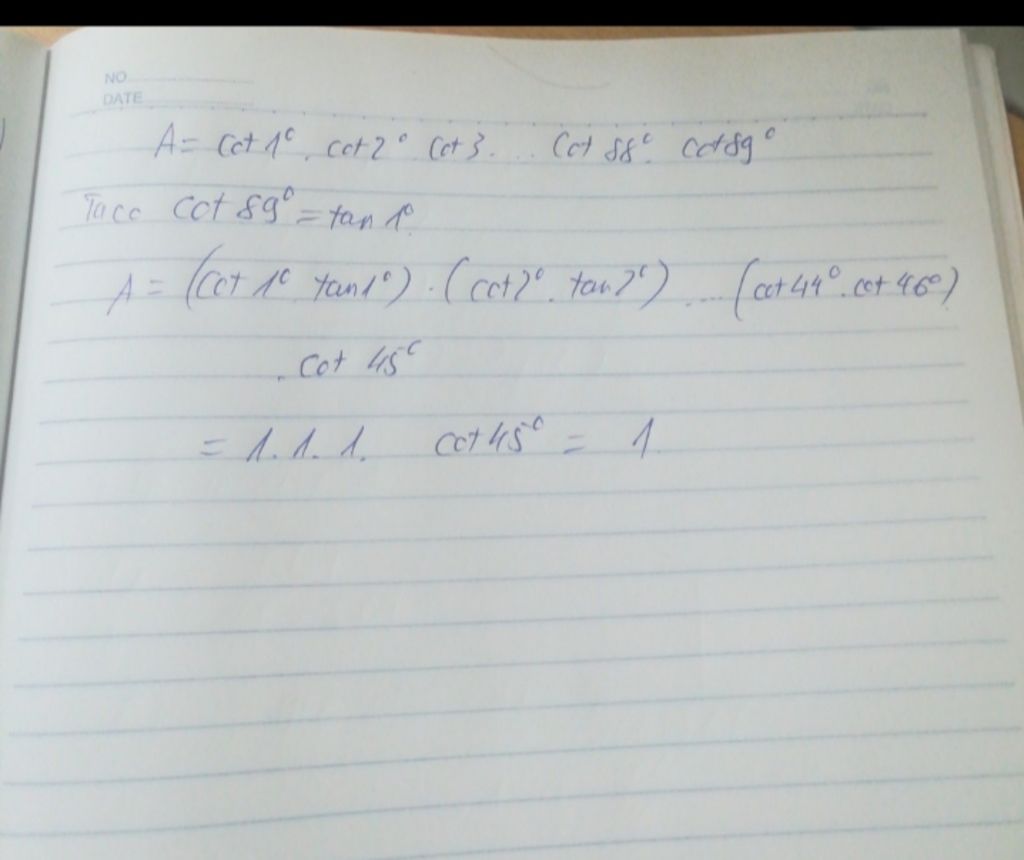 NO
DATE
A = cot 1° . cot 2° cot 3 . ... cot 88° . cot 89°
Ta có cot 89° = tan 1°.
A = (cot 1° tan 1°) . (cot 2° . tan 2°) .... (cot 44° . cot 46°)
. cot 45°
= 1 . 1 . 1 . cot 45° = 1